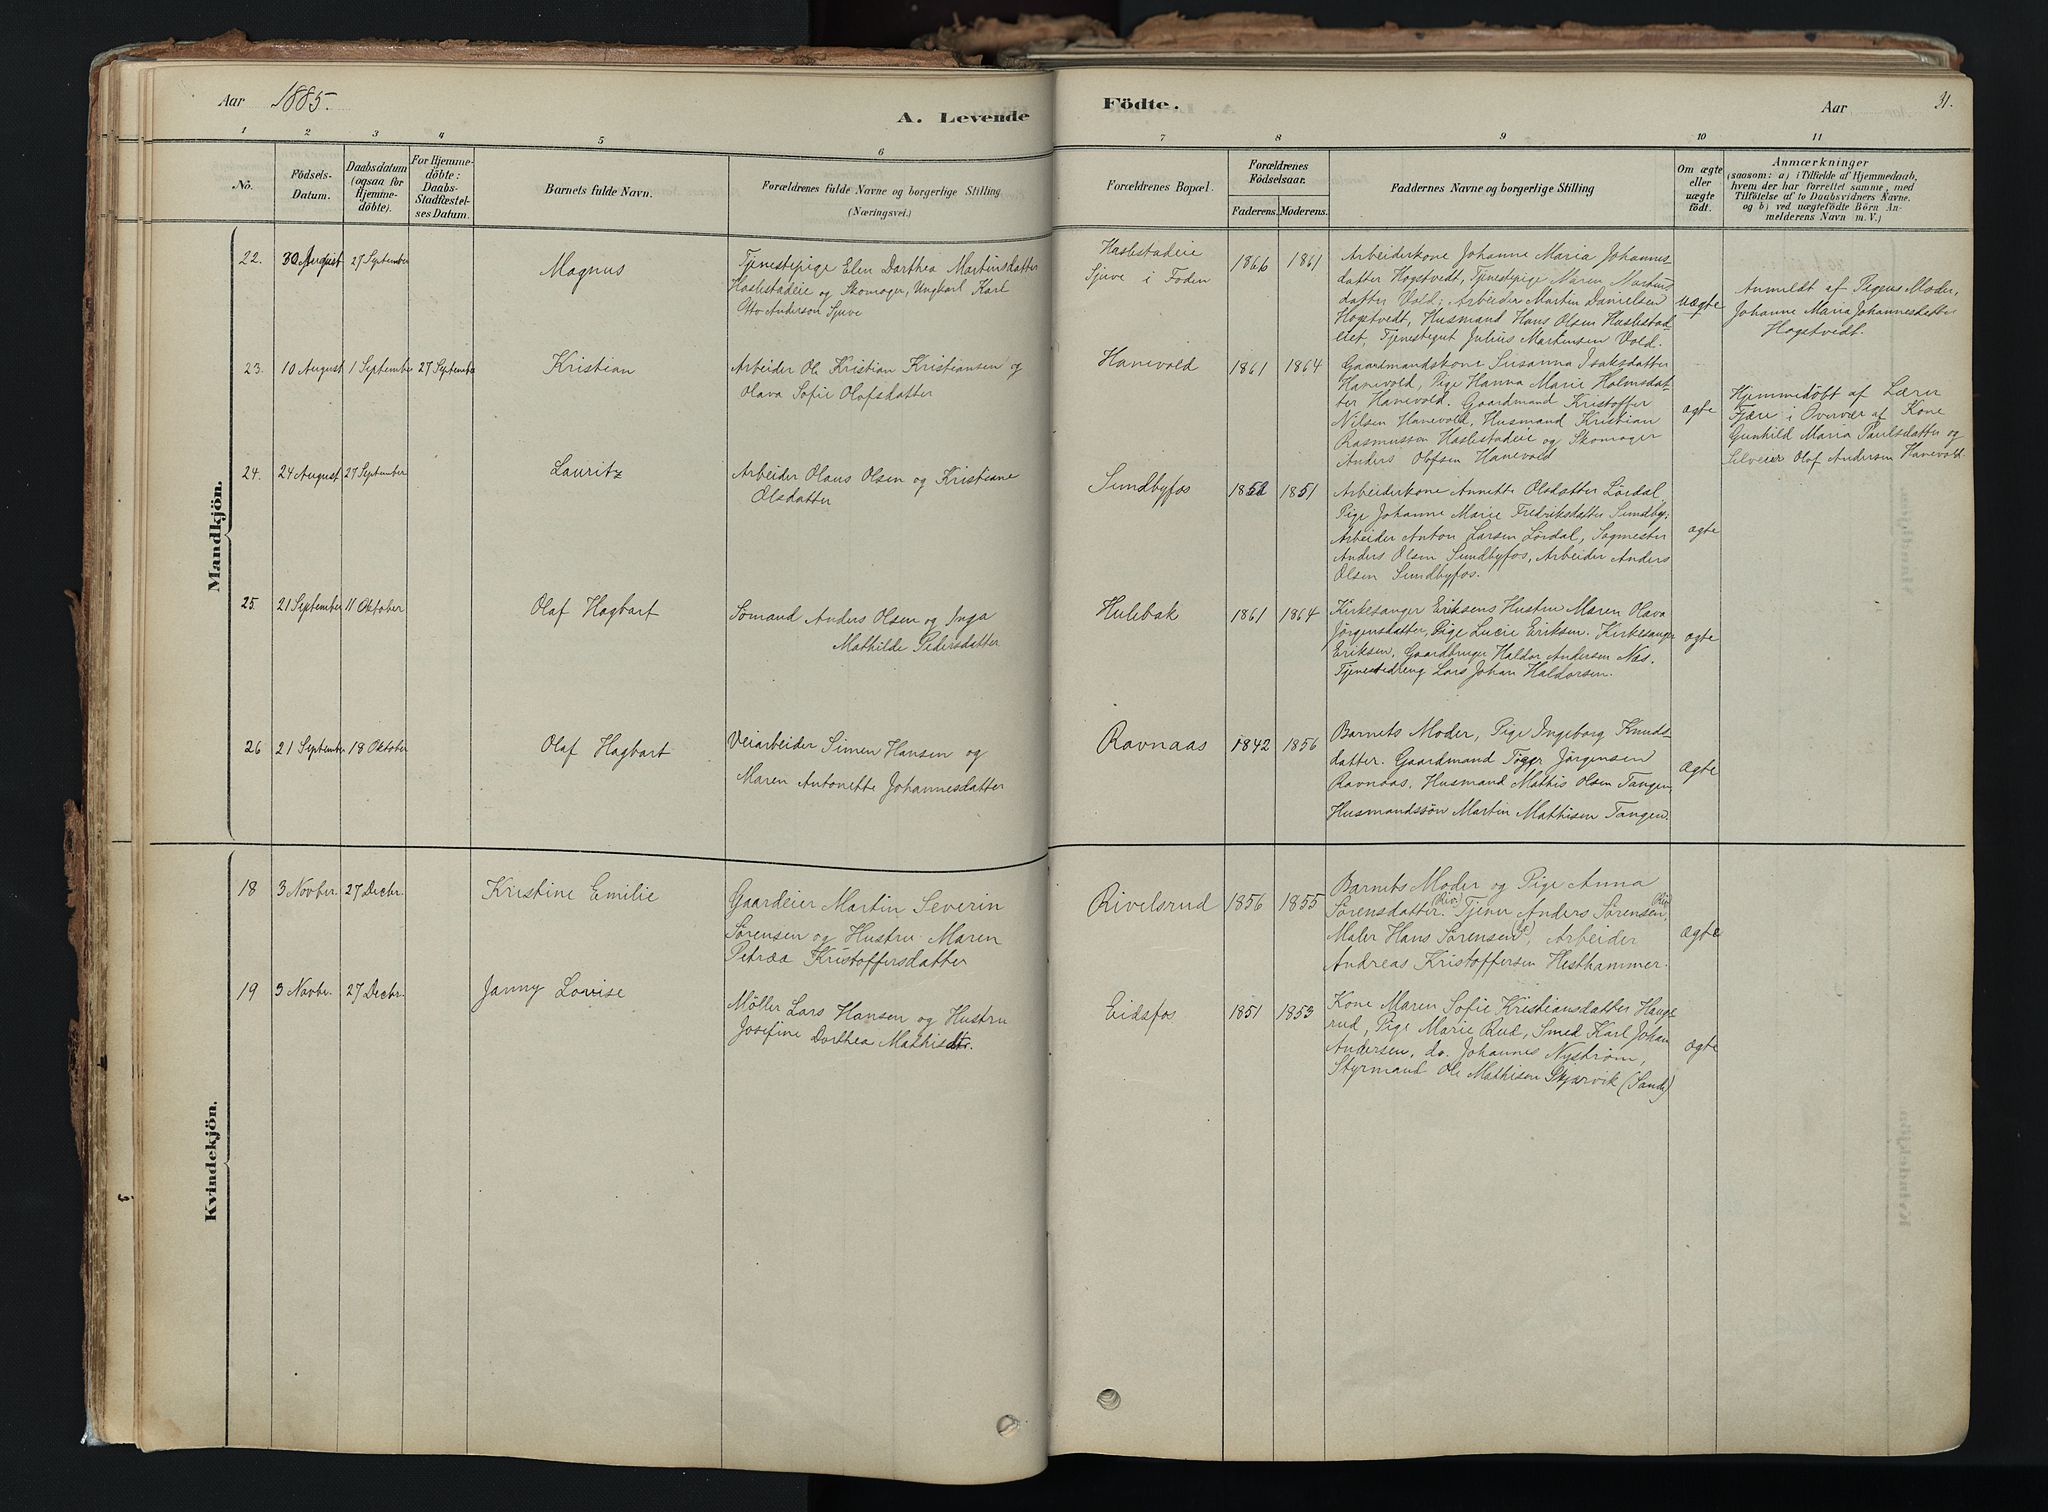 Aar 1885.
A. Levende
Födte.
Aar
31.
1 2 3 4 5 6 7 8 9 10 11
No.
Födsels-
Datum.
Daabsdatum
(ogsaa for
Hjemme-
döbte).
For Hjemme-
döbte:
Daabs-
Stadfæstel-
ses Datum.
Barnets fulde Navn.
Forældrenes fulde Navne og borgerlige Stilling.
(Næringsvei.)
Forældrenes Bopæl.
Forældrenes
Födselsaar.
Faderens. Moderens.
Faddernes Navne og borgerlige Stilling
Om ægte
eller
uægte
födt.
Anmærkninger
(saasom: a) i Tilfælde af Hjemmedaab,
hvem der har forrettet samme, med
Tilföielse af to Daabsvidners Navne.
og b) ved uægtefödte Börn An-
melderens Navn m. V.)
Mandkjön.
22. 30 August 27 September
Magnus
Tjenestepige Elen Dorthea Martinsdatter
Haslestadeie og Skomager, Ungkarl Karl
Otto Anderson Sjuve
Haslestadeie
Sjuve i Foden
1866 1861
Arbeiderkone Johanne Maria Johannes-
datter Hogstvedt, Tjenestepige Maren Martins-
datter Vold; Arbeider Martin Danielsen
Hogstvedt, Husmand Hans Olsen Haslestad-
eiet, Tjenestegut Julius Martinsen Vold.
uægte
Anmeldt af Pigens Moder,
Johanne Maria Johannesdatter
Hogstvedt.
23. 10 August 1 September 27 September
Kristian
Arbeider Ole Kristian Kristiansen og
Olava Sofie Olofsdatter
Hanevold
1861 1864
Gaardmandskone Susanna Isaksdatter
Hanevold, Pige Hanna Marie Holmsdat-
ter Hanevold. Gaardmand Kristoffer
Nilsen Hanevold, Husmand Kristian
Rasmussen Haslestadeie og Skomager
Anders Olofsen Hanevold
ægte
Hjemmedöbt af Lærer
Fjære i Overvær af Kone
Gunhild Maria Paulsdatter og
Selveier Olof Andersen Hanevold.
24. 24 August 27 September
Lauritz
Arbeider Olaus Olsen og Kristiane
Olsdatter
Sundbyfos
1852 1851
Arbeiderkone Annette Olsdatter Lördal,
Pige Johanne Marie Fredriksdatter Sundby;
Arbeider Anton Larsen Lördal, Sagmester
Anders Olsen Sundbyfos, Arbeider Anders
Olsen Sundbyfos.
ægte
25. 21 September 11 Oktober
Olaf Hagbart
Sömand Anders Olsen og Inga
Mathilde Pedersdatter
Hulebak
1861 1864
Kirkesanger Eriksens Hustru Maren Olava
Jörgensdatter, Pige Lucie Eriksen. Kirkesanger
Eriksen, Gaardbruger Haldor Andersen Næs.
Tjenestedreng Lars Johan Haldorsen.
ægte
26 21 September 18 Oktober
Olaf Hagbart
Veiarbeider Simen Hansen og
Maren Antonette Johannesdatter
Ravnaas
1842 1856
Barnets Moder, Pige Ingeborg Knuds-
datter. Gaardmand Jörgensen
Ravnaas, Husmand Mathis Olsen Tangen,
Husmandssön Martin Mathisen Tangen.
Ægte
Kvindekjön.
18 3 Novber. 27 Decbr.
Kristine Emilie
Gaardeier Martin Severin
Sørensen og Hustru Maren
Petræa Kristoffersdatter
Rivelsrud
1856 1855
Barnets Moder og Pige Anna
Sörensdatter (Riv.) Tjener Anders Sørensen (Riv.),
Maler Hans Sørensen, Arbeider
Andreas Kristoffersen Hesthammer.
ægte
19 3 Novbr. 27 Decbr.
Janny Lovise
Møller Lars Hansen og Hustru
Josefine Dorthea Mathisdtr.
Eidsfos
1851 1853
Kone Maren Sofie Kristiansdatter Hauge-
rud, Pige Marie Rud, Smed Karl Johan
Andersen, do. Johannes Nystrøm,
Styrmand Ole Mathisen Skjærvik (Sande)
ægte
3